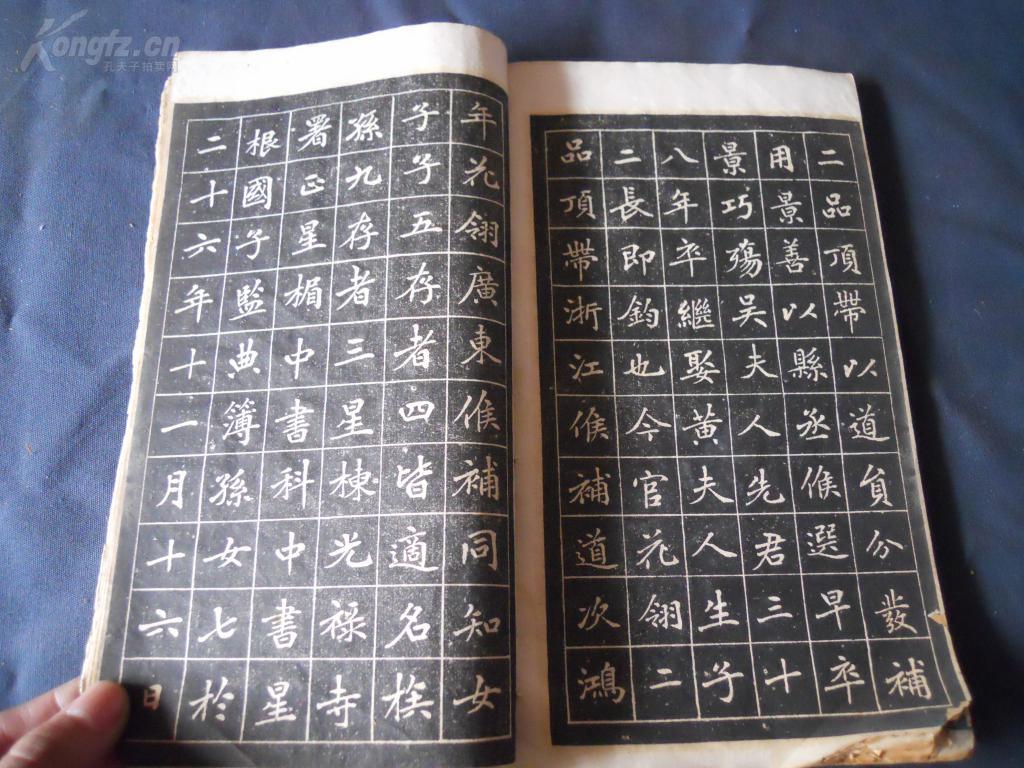 Kongfz.cn
孔夫子拍卖网
二品頂帶以道員分發補
用景善以縣丞候選早卒
景巧殤吳夫人先君三十
八年卒繼娶黃夫人生子
二長即鈞也今官花翎二
品頂帶浙江候補道次鴻
年花翎廣東候補同知女
子子五存者四皆適名族
孫九存者三星棟光祿寺
署正星楣中書科中書星
根國子監典簿孫女七於
二十六年十一月十六日